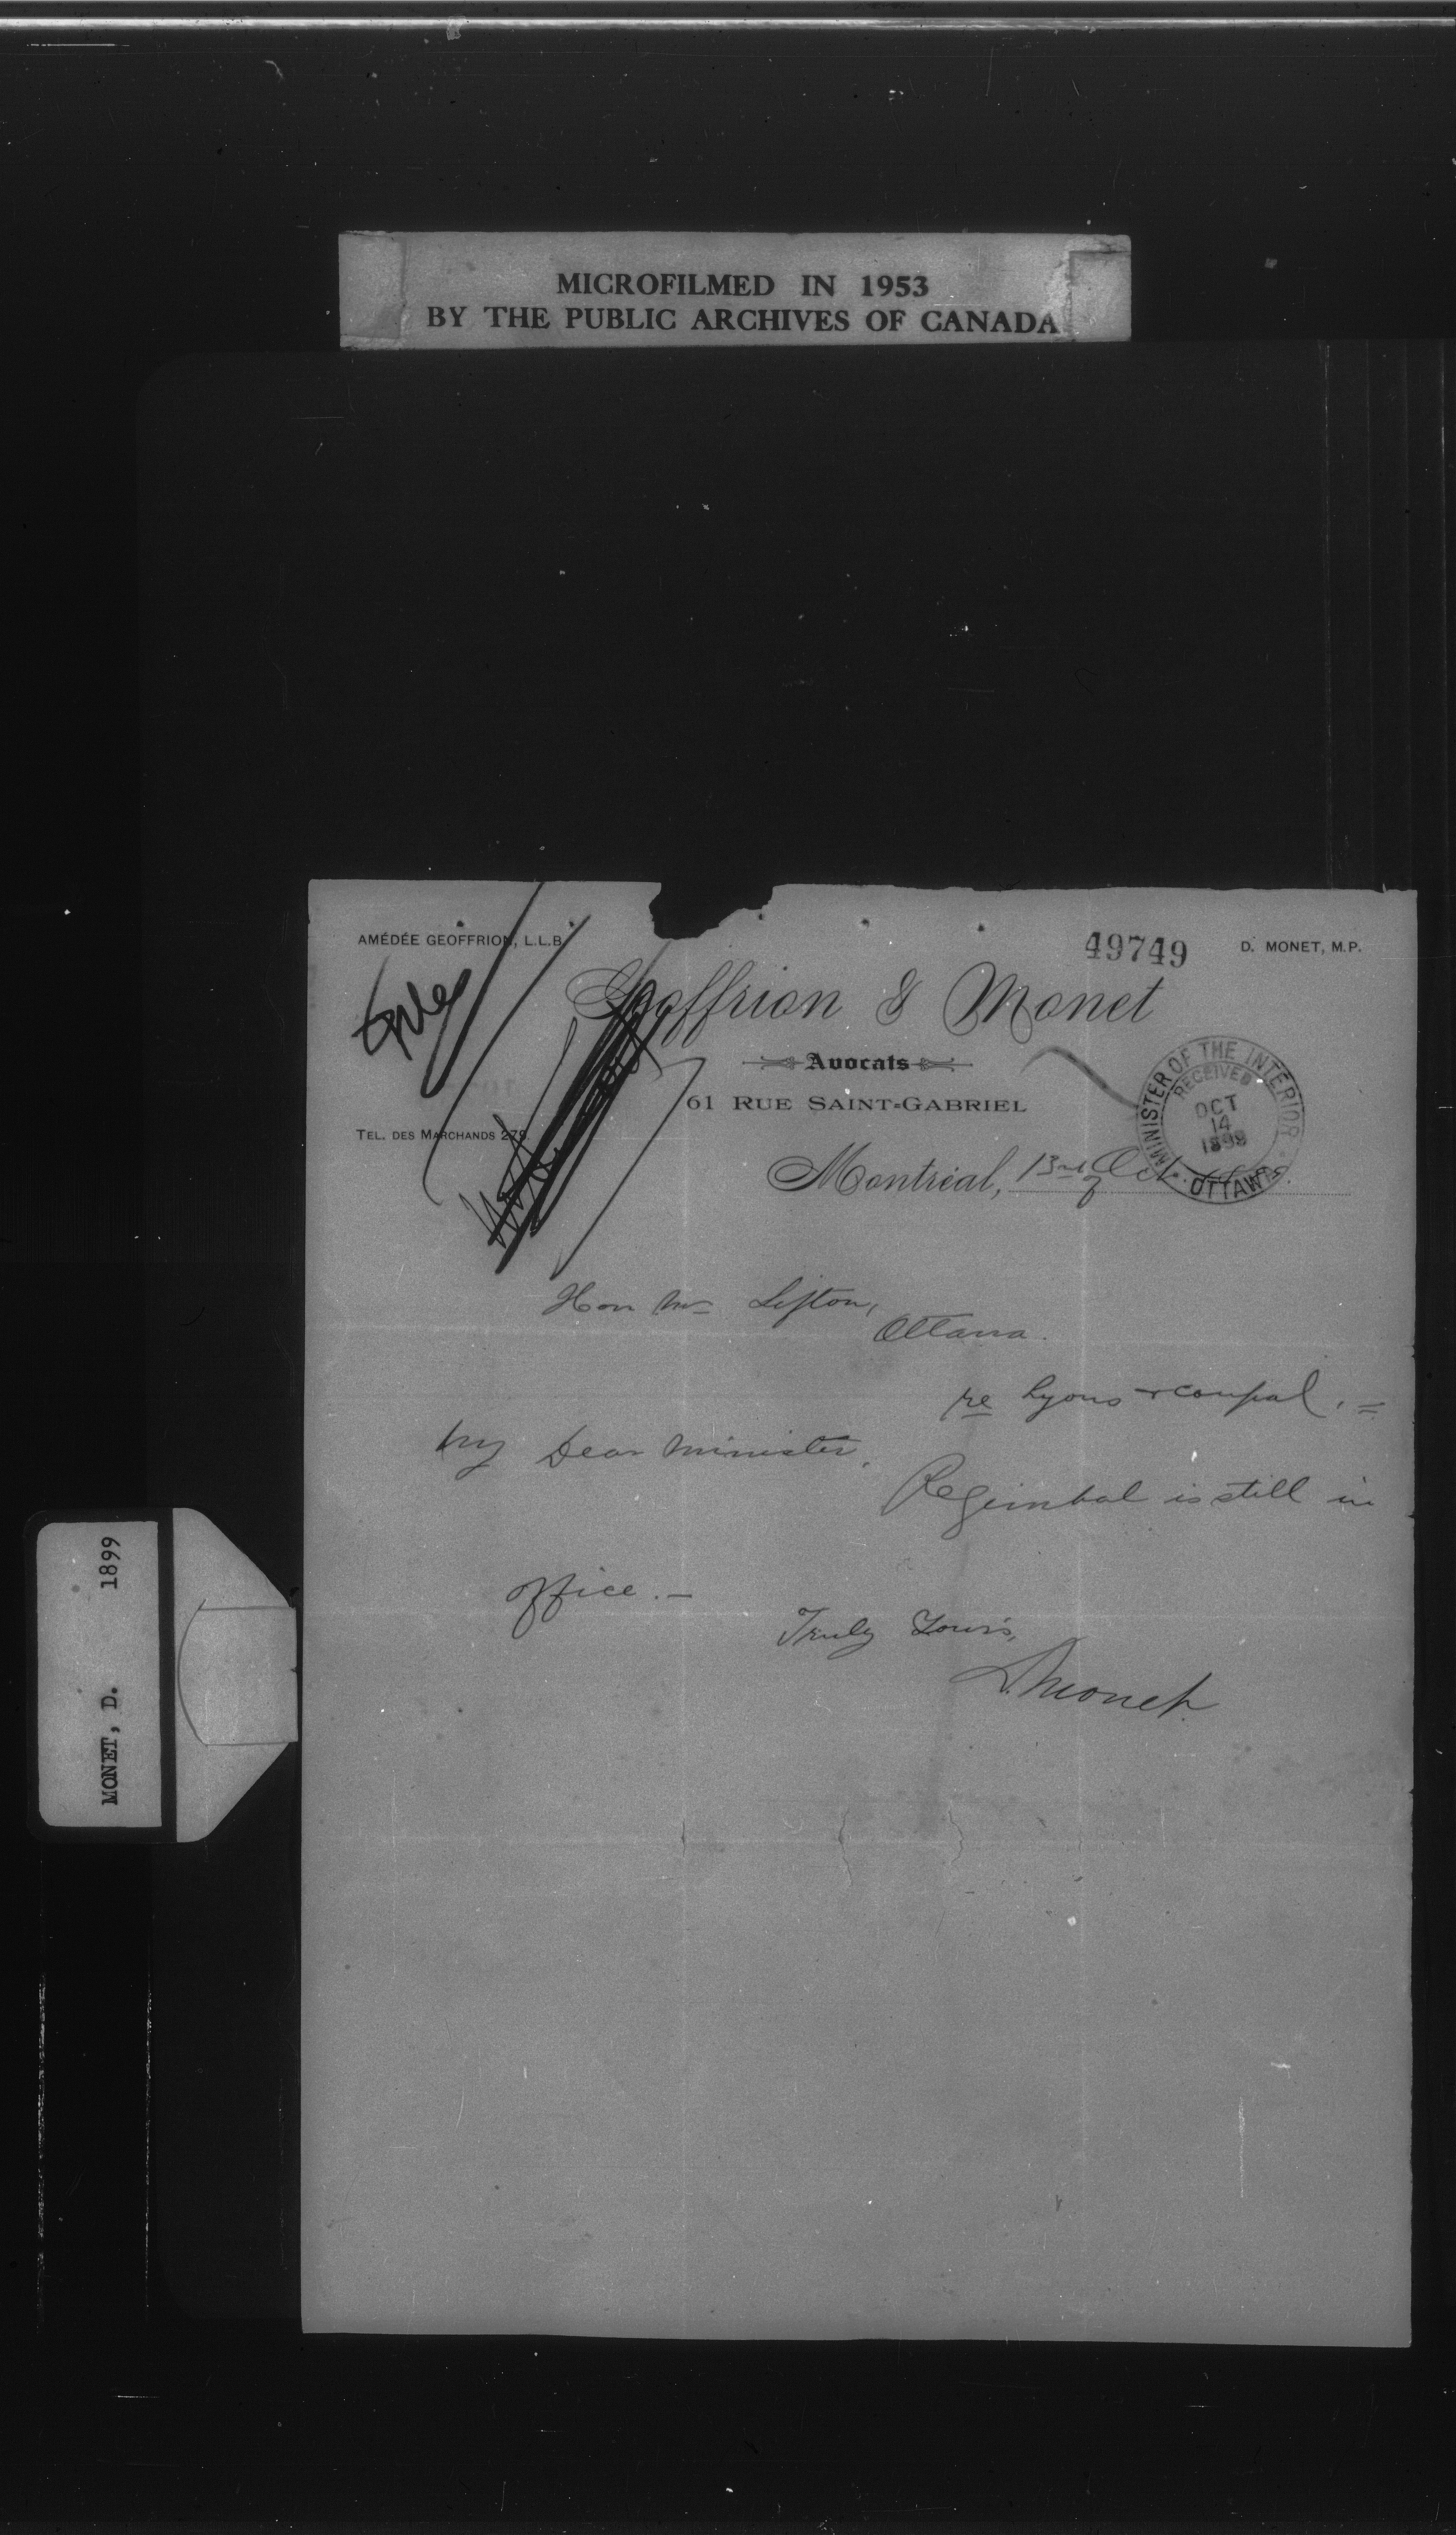 MICROFILMED IN 1953
BY THE PUBLIC ARCHIVES OF CANADA
AMÉDÉE GEOFFRION, L.L.B.
49749
D. MONET, M.P.
Geoffrion & Monet
Avocats
61 RUE SAINT-GABRIEL
TEL. DES MARCHANDS 279.
MINISTER OF THE INTERIOR
RECEIVED
OCT
14
1899
OTTAWA
Montréal, 13rd of Oct.
Hon Mr Sifton,
Ottawa.
re Lyons & Coupal. =
My Dear Minister,
Regimbal is still in
office. —
Truly Yours,
D. Monet.
MONET, D. 1899